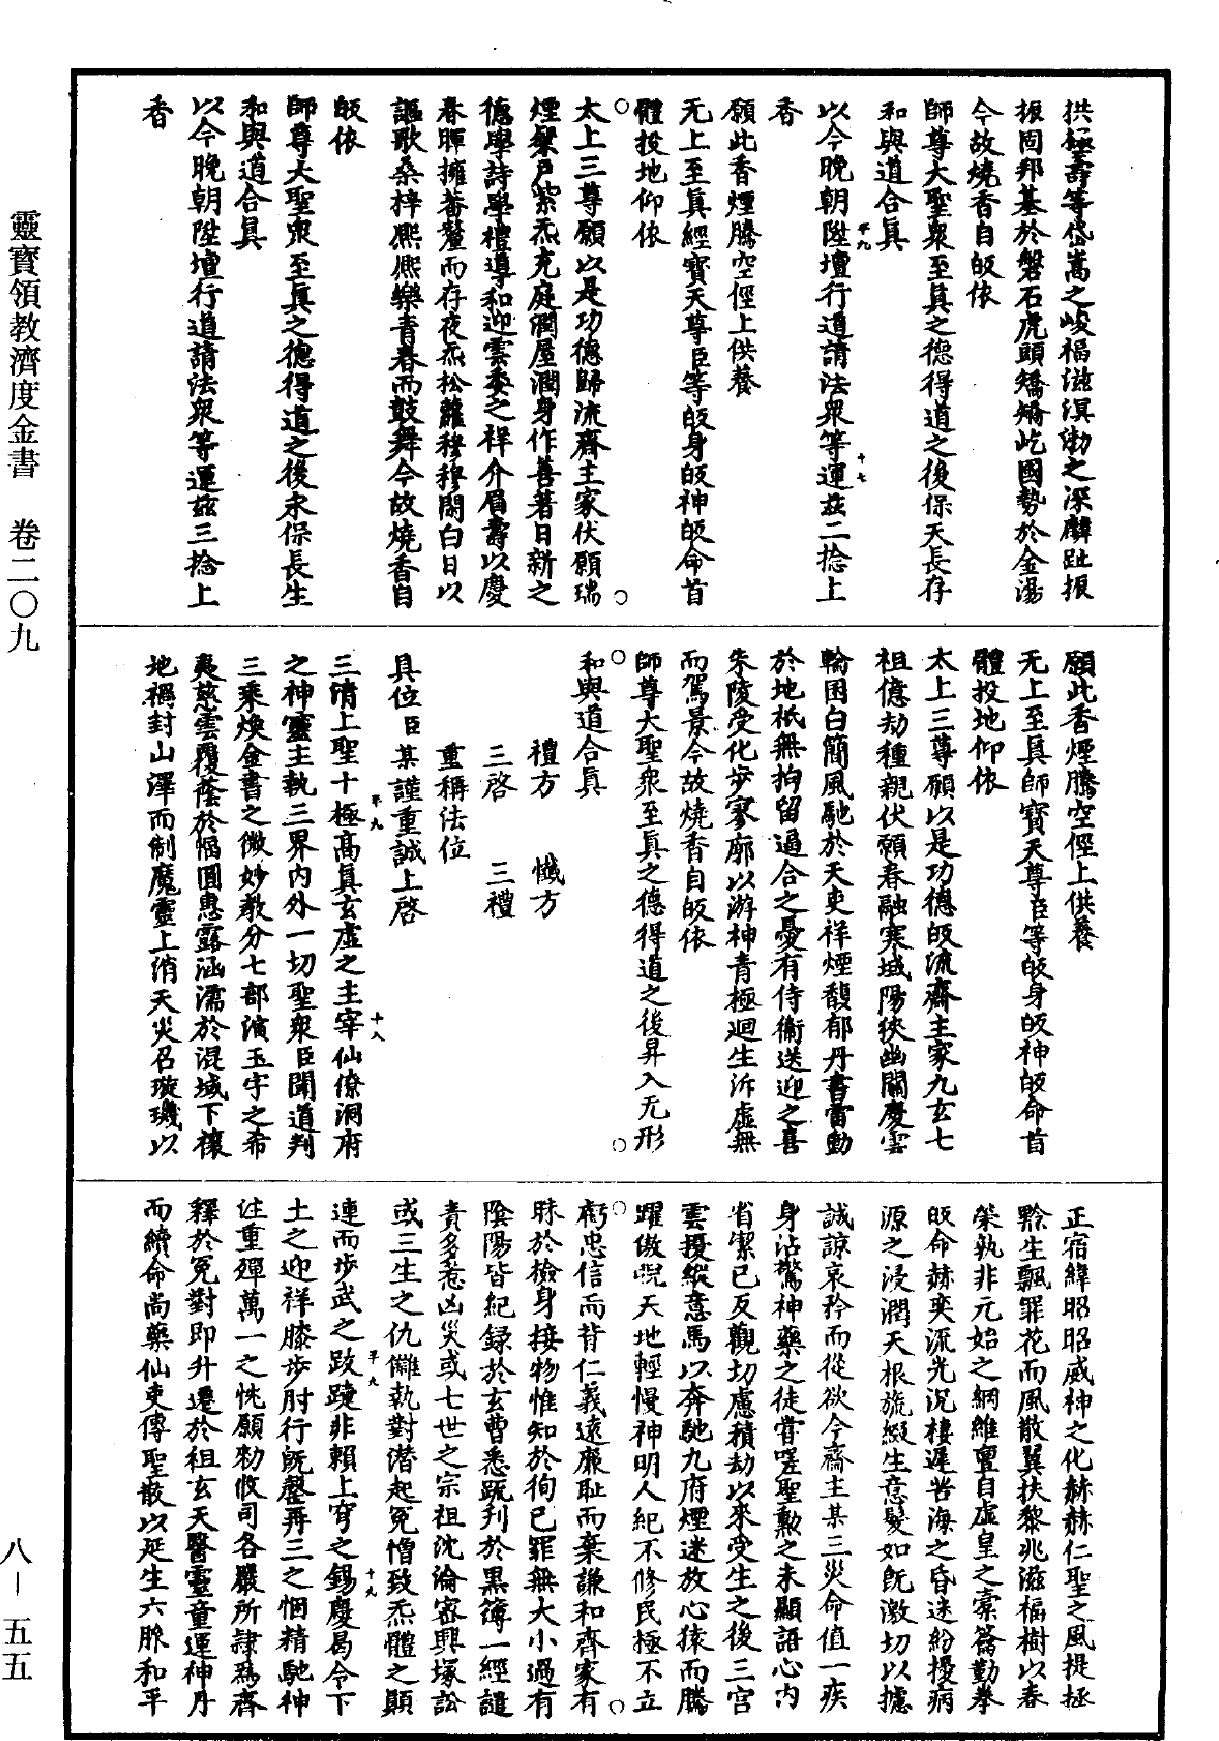 拱極壽等岱嵩之峻福滋溟渤之深麟趾振
振固邦基於磐石虎頭矯矯屹國勢於金湯
今故燒香自皈依
師尊大聖衆至真之德得道之後保天長存
和與道合真
以今晚朝陞壇行道請法衆等運茲二捻上
香
願此香煙騰空徑上供養
无上至真經寶天尊臣等皈身皈神皈命首
體投地仰依
太上三尊願以是功德歸流齋主家伏願瑞
煙縈戶紫炁充庭潤屋潤身作善著日新之
德學詩學禮導和迎雲委之祥介眉壽以慶
春暉擁蕃釐而存夜炁松蘿穆穆閱白日以
謳歌桑梓熙熙樂青春而鼓舞今故燒香自
皈依
師尊大聖衆至真之德得道之後永保長生
和與道合真
以今晚朝陞壇行道請法衆等運茲三捻上
香
願此香煙騰空徑上供養
无上至真師寶天尊臣等皈身皈神皈命首
體投地仰依
太上三尊願以是功德皈流齋主家九玄七
祖億劫種親伏願春融寒域陽狹幽關慶雲
輪囷白簡風馳於天吏祥煙馥郁丹書雷動
於地祇無拘留逼合之憂有侍衛送迎之喜
朱陵受化步寥廓以游神青極迴生泝虛無
而駕景今故燒香自皈依
師尊大聖衆至真之德得道之後昇入无形
和與道合真
禮方 懺方
三啓 三禮
重稱法位
具位臣某謹重誠上啓
三清上聖十極高真玄虛之主宰仙僚洞府
之神靈主執三界內外一切聖衆臣聞道判
三乘煥金書之微妙教分七部演玉字之希
夷慈雲覆蔭於幅圓惠露涵濡於混域下禳
地禍封山澤而制魔靈上消天災召璇璣以
正宿緯昭昭威神之化赫赫仁聖之風提拯
黔生飄罪花而風散翼扶黎兆滋福樹以春
榮孰非元始之綱維亶自虛皇之橐籥勤拳
皈命赫奕流光沉棲遲苦海之昏迷紛擾病
源之浸潤天根旒綴生意髮如旣激切以攄
誠諒哀矜而從欲今齋主某三災命值一疾
身沾驚神藥之徒嘗嗟聖勲之未顯語心內
省潔己反觀切慮積劫以來受生之後三宮
雲擾縱意馬以奔馳九府煙迷放心猿而騰
躍傲睨天地輕慢神明人紀不修民極不立
虧忠信而背仁義遠廉恥而棄謙和齊家有
昧於檢身接物惟知於徇己罪無大小過有
陰陽皆紀錄於玄曹悉疏列於黑簿一經譴
責多惹凶災或七世之宗祖沈淪密興塚訟
或三生之仇讎執對潛起冤憎致炁體之顛
連而步武之跛躄非賴上穹之錫慶曷令下
土之迎祥膝步肘行旣罄再三之悃精馳神
往重殫萬一之忱願勑攸司各嚴所隸爲齊
釋於冤對即升遷於祖玄天醫靈童運神丹
而續命尚藥仙吏傳聖散以延生六脉和平
靈寶領教濟度金書 卷二〇九
八—五五